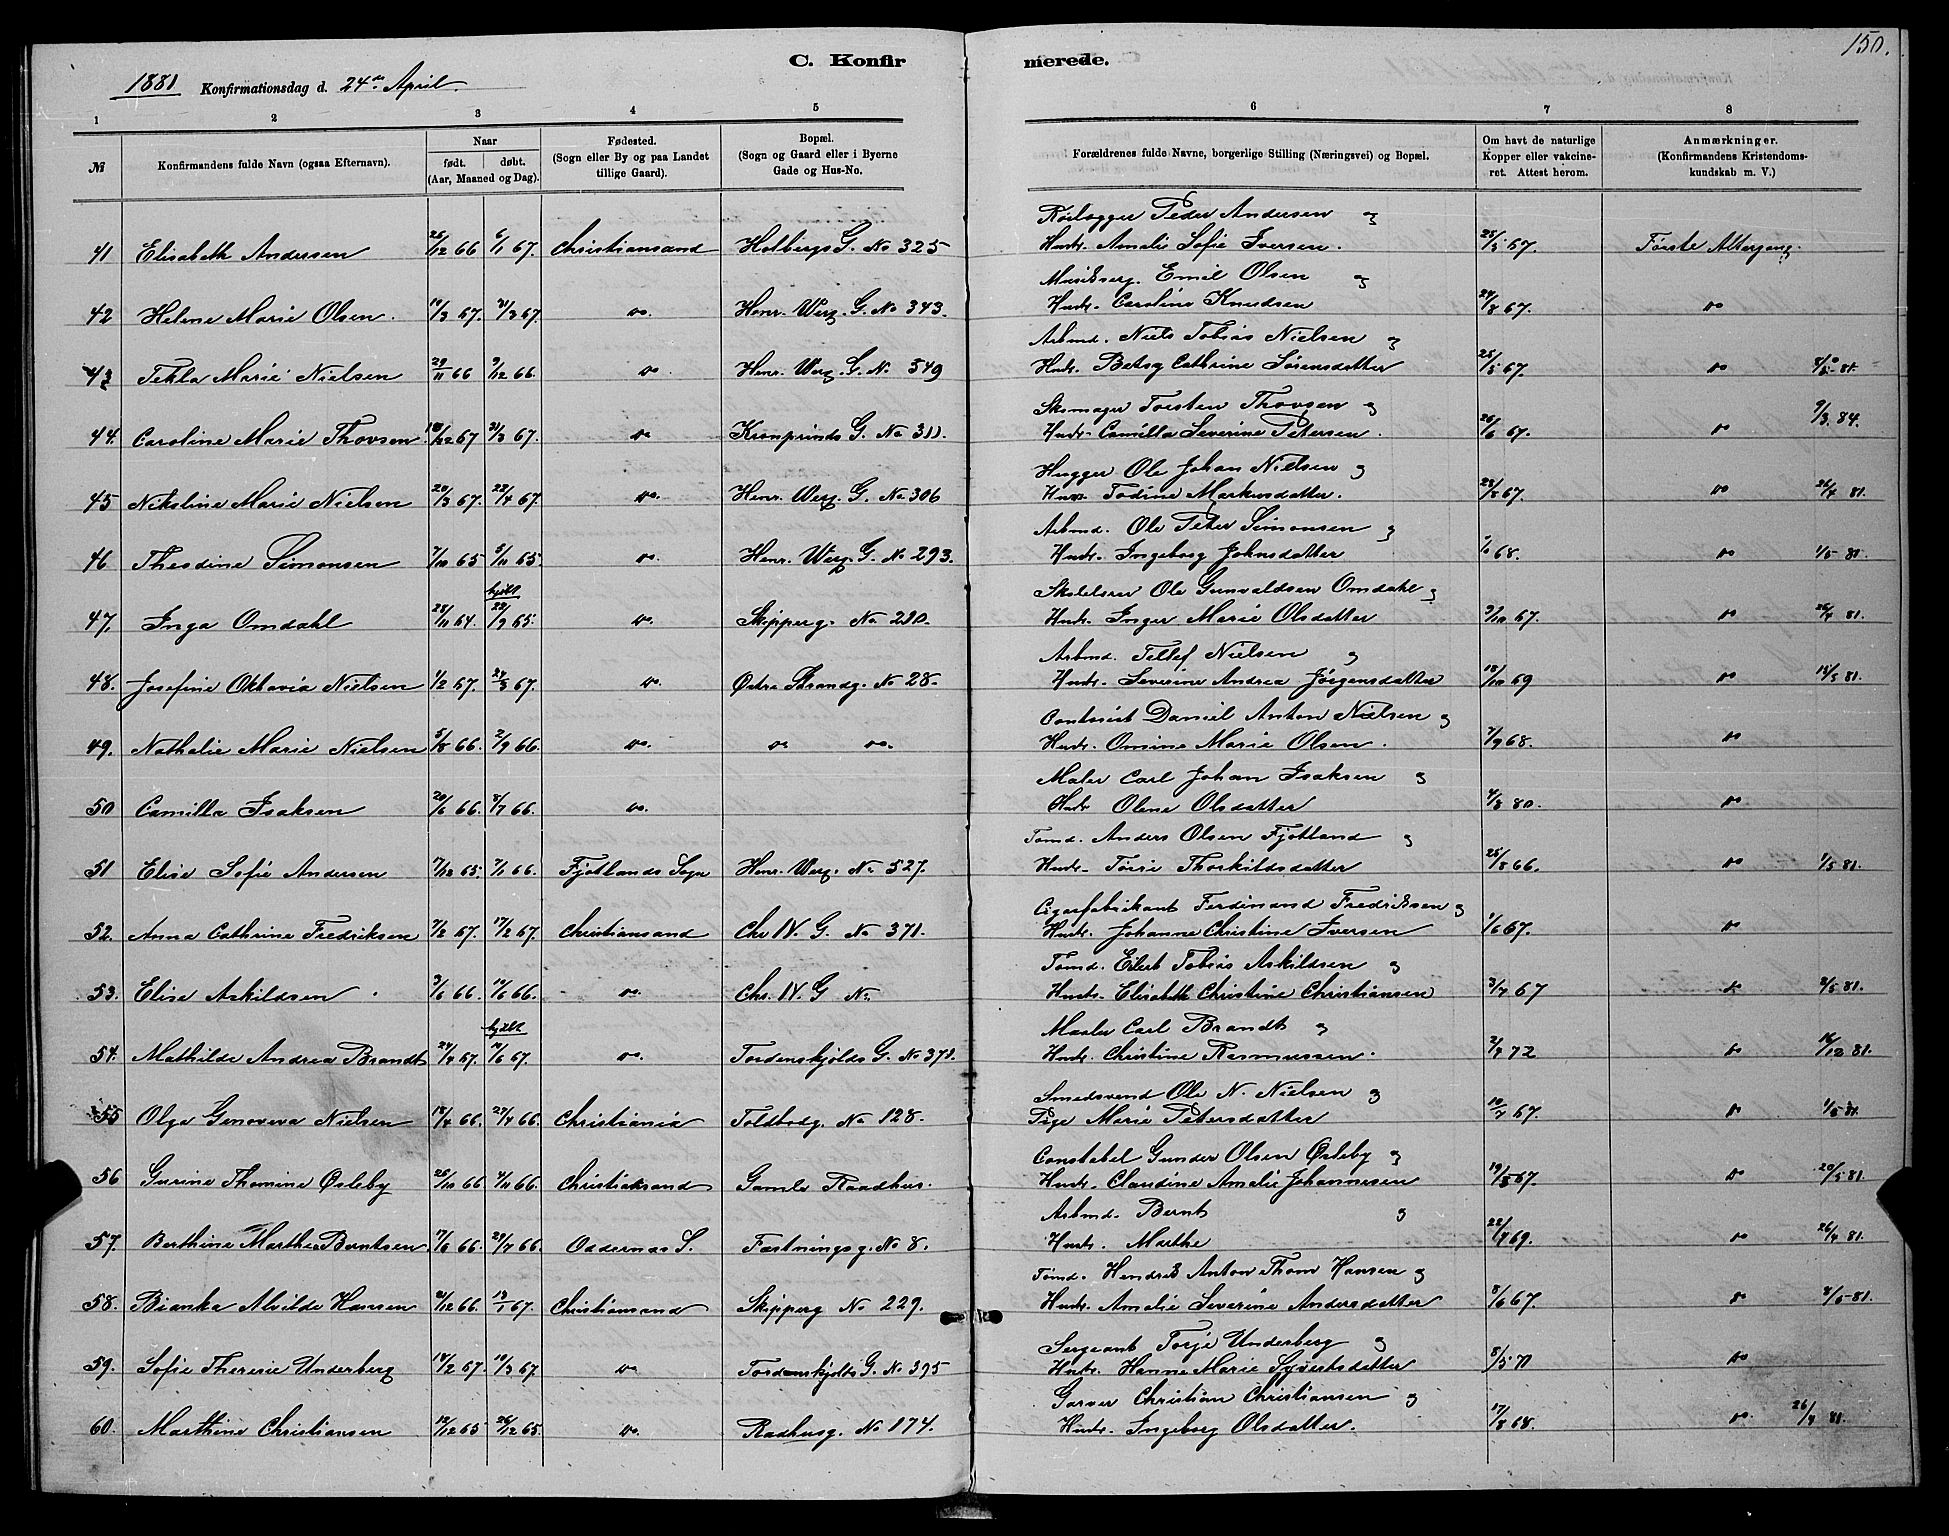 150.
C. Konfir merede.
1881 Konfirmationsdag d. 24de April.
1 2 3 4 5 6 7 8
№
Konfirmandens fulde Navn (ogsaa Efternavn).
Naar
født. døbt.
(Aar, Maaned og Dag).
Fødested.
(Sogn eller By og paa Landet
tillige Gaard).
Bopæl.
(Sogn og Gaard eller i Byerne
Gade og Hus-No.
Forældrenes fulde Navne, borgerlige Stilling (Næringsvei) og Bopæl.
Om havt de naturlige
Kopper eller vakcine-
ret. Attest herom.
Anmærkninger.
(Konfirmandens Kristendoms-
kundskab m. V.)
Rørlægger Peder Andersen og
41 Elisabeth Andersen 26/12 66 6/1 67. Christiansand Holbergs G. No 325 Hustr. Amalie Sofie Iversen. 25/5 67. Første Altergang.
Musikberg. Emil Olsen og
42 Helene Marie Olsen. 19/3 67. 31/3 67. do. Henr. Werg. G. No 343. Hustr. Caroline Knudsen 24/8 67. do
Arbmd. Niels Tobias Nielsen og
43 Tekla Marie Nielsen 29/11 66 9/12 66. do. Henr. Werg. G. No 549 Hustr. Betsy Cathrine Sørensdatter 25/5 67. do
Skomager Torsten Thovsen og
44. Caroline Marie Thovsen 67 21/3 67. do Kronprinds G. No 311. Hustr. Camilla Severine Petersen. 26/6 67. do 9/3. 84.
Hugger Ole Johan Nielsen og
45 Nikoline Marie Nielsen 20/3 67. 22/4 67. do. Henr. Werg. G. No. 306 Hustr. Todine Markusdatter. 28/8 67. do 26/4 81.
Arbmd. Ole Peter Simonsen og
46. Theodine Simonsen 7/10 65 5/11 65. do. Henr. Werg. G. No 293. Hustr. Ingeborg Johnsdatter 68. do 1/5 81.
hjdbt
Skolelærer Ole Gunvaldsen Omdahl og
47. Inga Omdahl 28/11 64. 22/9 65. do. Skipperg. No 210. Hustr. Inger Marie Olsdatter 3/10 67. do 26/4 81.
Arbmd. Tellef Nielsen og
48. Josefine Oktavia Nielsen 1/2 67. 24/3 67. do. Østre Strandg. No 28. Hustr. Severine Andrea Jørgensdatter 18/10 69 do 13/5 81.
Contorist Daniel Anton Nielsen og
49. Nathalie Marie Nielsen 5/8 66. 2/9 66. do. do do. Hustr. Omine Marie Olsen. 7/9 68. do
Maler Carl Johan Isaksen og
50 Camilla Isaksen 20/6 66. 8/7 66. do. Hustr Olene Olsdatter 4/3 80. do
Tømd. Anders Olsen Fjotland og
51 Elise Sofie Andersen 7/12 65. 7/1 66. Fjotlands Sogn Henr. Werg. No 527. Hustr. Torie Thorkildsdatter 25/8 66. do 1/5 81.
Cigarfabrikant Ferdinand Fredriksen og
52. Anna Cathrine Fredriksen 7/2 67. 17/2 67. Christiansand Chr IV. G. No 371. Hustr. Johanne Christine Iversen 1/6 67. do
Tømd. Eilert Tobias Askildsen og
53. Elise Askildsen 3/6 66. 17/6 66. do. Chr. IV. G No. Hustr. Elisabeth Christine Christiansen 3/7 67 do 2/5 81.
hjdbt
Maler Carl Brandt og
54. Mathilde Andrea Brandt 24/4 67. 11/6 67. do. Tordenskjolds G. No 371. Hustr. Christine Rasmussen. 2/7 72 do 16/12 81.
Smedsvend Ole N. Nielsen og
55 Olga Genoveva Nielsen 18/4 66. 27/4 66. Christiania Toldbodg. No 128. Pige Marie Petersdatter 10/7 67. do 1/5 81.
Constabel Gunder Olsen Østeby og
56 Gurine Thomine Østeby 26/10 66 4/11 66. Christiansand Gamle Raadhus. Hustr. Claudine Amalie Johannesen 19/8 67. do 20/5 81.
Arbmd. Bernt og
57. Berthine Marthe Berntsen 17/6 66. 29/7 66. Oddernes S. Fæstningsg. No 8. Hustr. Marthe 22/4 69. do 26/4 81.
Tømd. Hendrik Anton Thom Hansen og
58. Bianka Alvilde Hansen 21/12 66. 13/1 67. Christiansand Skipperg No 229. Hustr. Amalie Severine Andersdatter 8/6 67. do 8/5 81.
Sergeant Torje Underberg og
59. Sofie Theresie Underberg 14/2 67. 10/3 67 do Tordenskjolds G. No 395 Hustr. Hanne Marie Syvertsdatter 8/5 70 do
Garver Christian Christiansen og
60. Marthine Christiansen 12/12 65 26/12 65. do. Raadhusg. No 174. Hustr. Ingeborg Olsdatter. 17/8 68. do. 26/4 81.